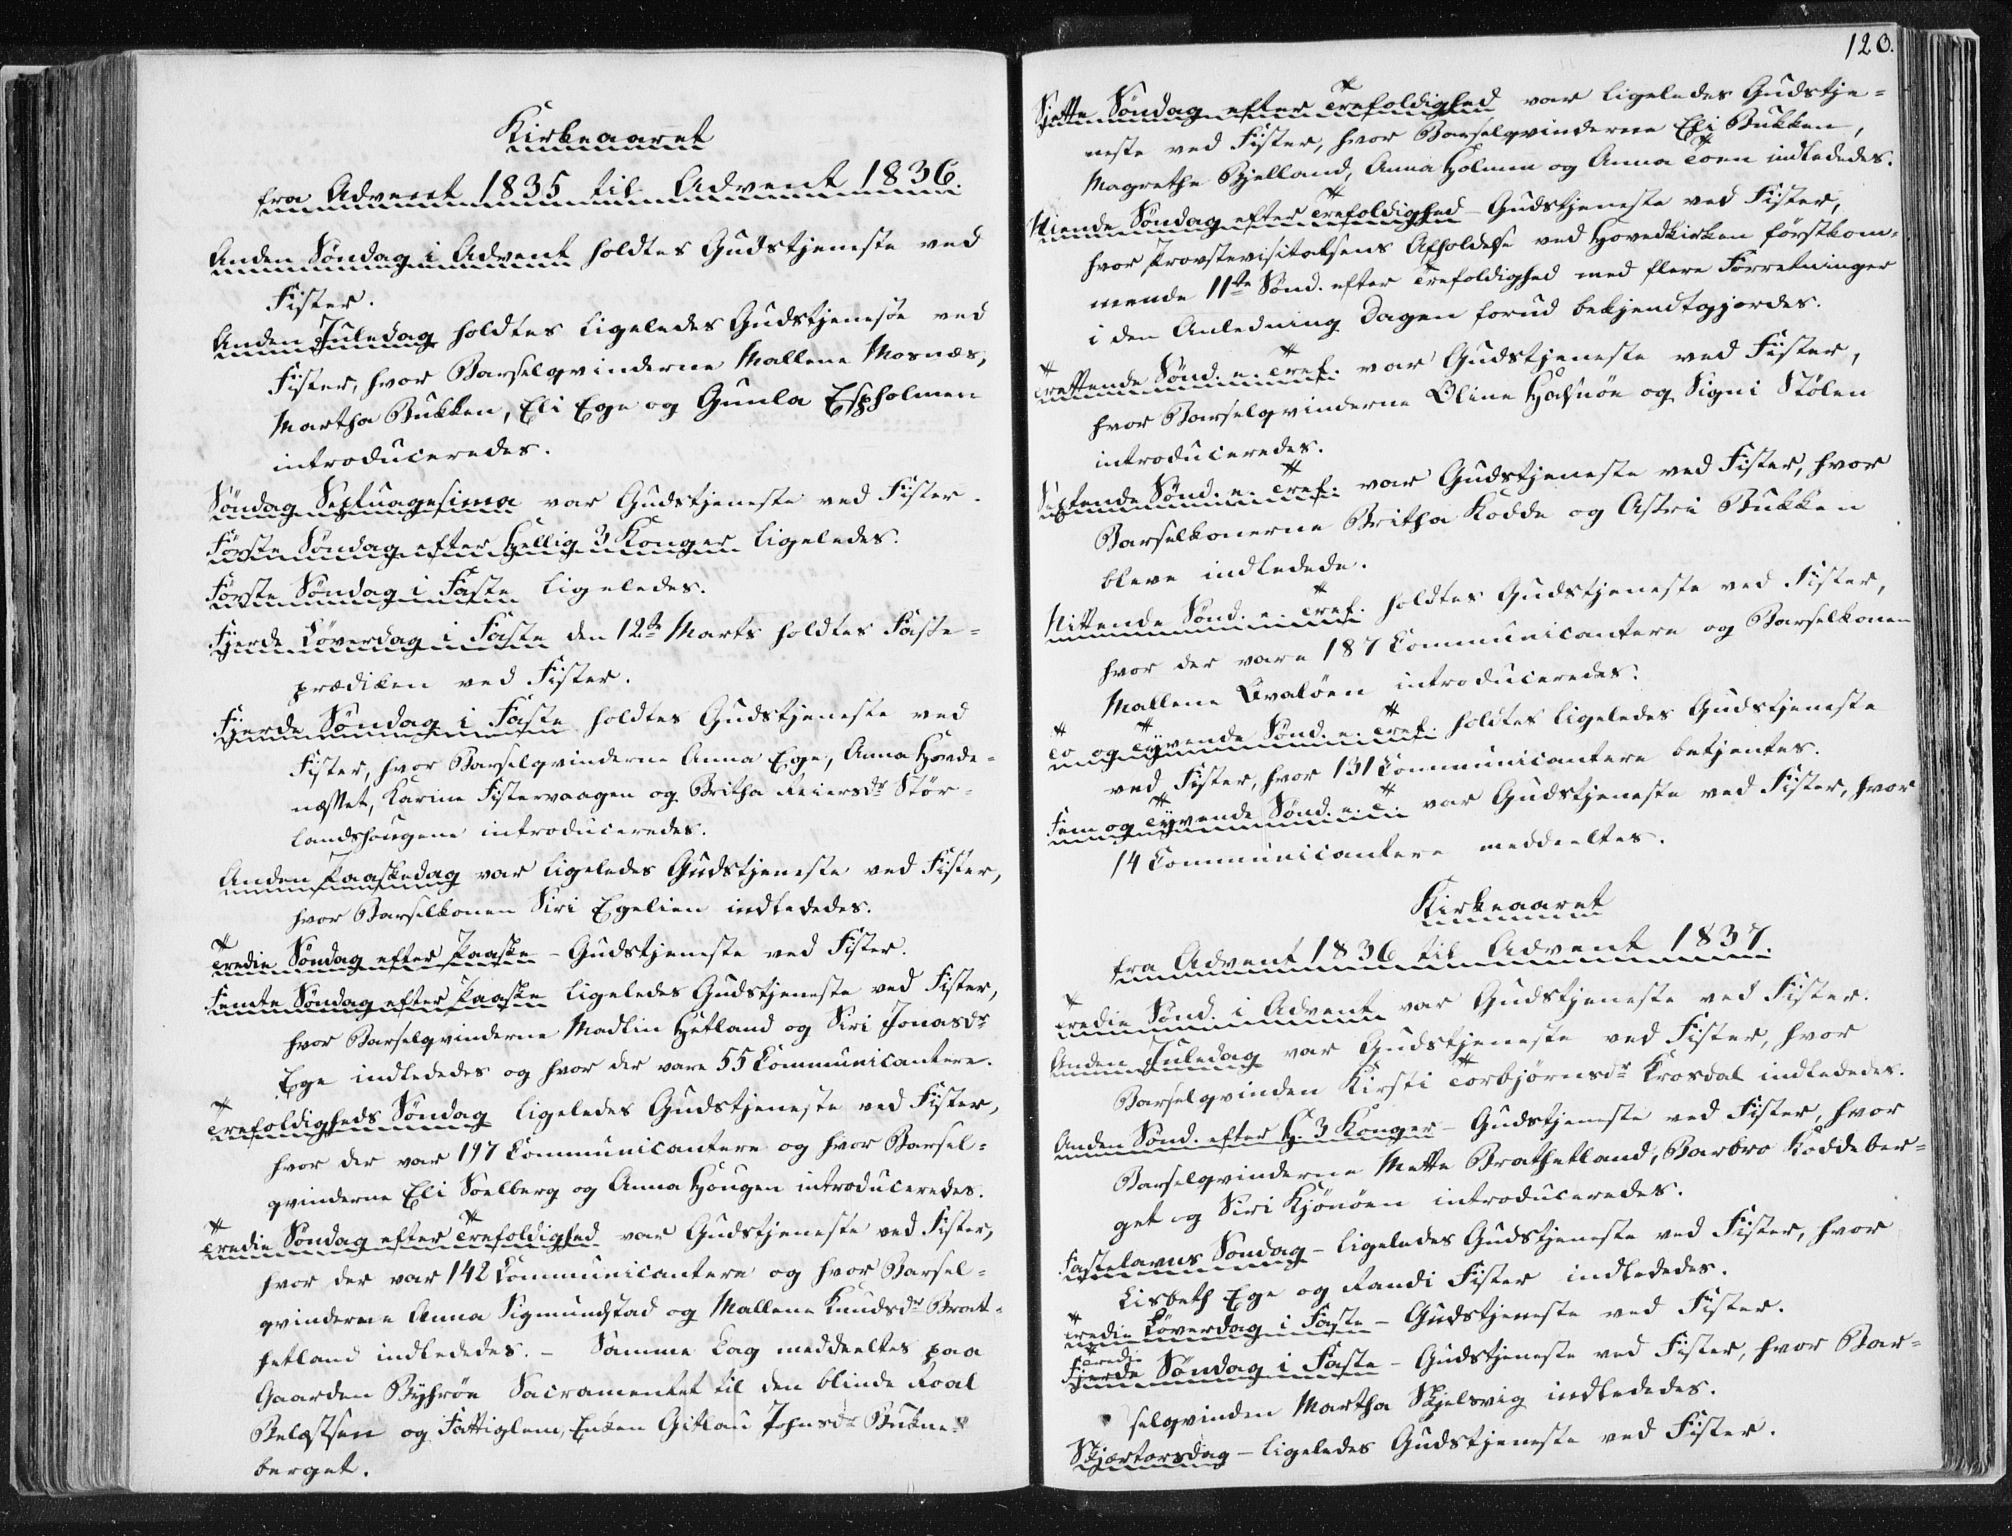 Kirkeaaret
fra Advent 1835 til Advent 1836.
Anden Söndag i Advent holdtes Gudstjeneste ved
Fister.
Anden Juledag holdtes ligeledes Gudstjeneste ved
Fister, hvor Barselqvinderne Mallene Mosnæs,
Martha Bukken, Eli Ege og Gunla Espholmen
introduceredes.
Söndag Septuagesima var Gudstjeneste ved Fister.
Förste Söndag efter Hellig 3 Konger ligeledes.
Förste Söndag i Faste ligeledes.
Fjerde Löverdag i Faste den 12te Marts holdtes Faste-
prædiken ved Fister.
Fjerde Söndag i Faste holdtes Gudstjeneste ved
Fister, hvor Barselqvinderne Anna Ege, Anna Hovde-
næsset, Karine Fistervaagen og Britha Reiersdr Stör-
landshougene introduceredes.
Anden Paaskedag var ligeledes Gudstjeneste ved Fister,
hvor Barselkonen Siri Egelien indlededes.
Tredie Söndag efter Paaske - Gudstjeneste ved Fister.
Femte Söndag efter Paaske ligeledes Gudstjeneste ved Fister,
hvor Barselqvinderne Madlin Hetland og Siri Jonasdr
Ege indlededes og hvor der vare 55 Communicantere.
Trefoldigheds Söndag ligeledes Gudstjeneste ved Fister,
hvor der var 197 Communicantere og hvor Barsel-
qvinderne Eli Soelberg og Anna Hougen introduceredes.
Tredie Söndag efter Trefoldighed var Gudstjeneste ved Fister,
hvor der var 142 Communicantere og hvor Barsel-
qvinderne Anna Sigmundstad og Mallene Knudsdr Brat-
hetland indlededes. - Samme Dag meddeeltes paa
Gaarden Byhröe Sacramentet til den blinde Roal
og Fattiglem, Enken Gitlau Johnsdr Bukne-
berget.
120.
Sjette Söndag efter Trefoldighed var ligeledes Gudstje-
neste ved Fister, hvor Barselqvinderne Eli Bukken,
Magrethe Bjelland, Anna Holmen og Anna Toen indlededes.
Niende Söndag efter Trefoldighed - Gudstjeneste ved Fister,
hvor Provstevisitatsens Afholdelse ved Hovedkirken förstkom-
mende 11te Sönd. efter Trefoldighed med flere Forretninger
i den Anledning Dagen forud bekjendtgjordes.
Trettende Sönd. e. Tref. var Gudstjeneste ved Fister,
hvor Barselqvinderne Oline Halsnöe og Signi Stölen
introduceredes.
Syttende Sönd. e. Tref. var Gudstjeneste ved Fister, hvor
Barselkonerne Britha Kodde og Astri Bukken
bleve indledede.
Nittende Sönd. e. Tref. holdtes Gudstjeneste ved Fister,
hvor der vare 187 Communicantere og Barselkonen
Mallene Qvalöen introduceredes.
To og Tyvende Sönd. e. Tref. holdtes ligeledes Gudstjeneste
ved Fister, hvor 131 Communicantere betjentes.
Fem og Tyvende Sönd. e. T. var Gudstjeneste ved Fister, hvor
14 Communicantere meddeeltes.
Kirkeaaret
fra Advent 1836 til Advent 1837.
Tredie Sönd. i Advent var Gudstjeneste ved Fister.
Anden Juledag var Gudstjeneste ved Fister, hvor
Barselqvinden Kirsti Torbjörnsdr Krosdal indlededes.
Anden Sönd. efter H. 3 Konger - Gudstjeneste ved Fister, hvor
Barselqvinderne Mette Brathetland, Barbro Koddeber-
get og Siri Kjönöen introduceredes.
Fastelavns Söndag - ligeledes Gudstjeneste ved Fister, hvor
Lisbeth Ege og Randi Fister indlededes.
Tredie Löverdag i Faste - Gudstjeneste ved Fister.
Tredie
Fjerde Söndag i Faste - Gudstjeneste ved Fister, hvor Bar-
selqvinden Martha Skjelsvig indlededes.
Skjærtorsdag - ligeledes Gudstjeneste ved Fister.